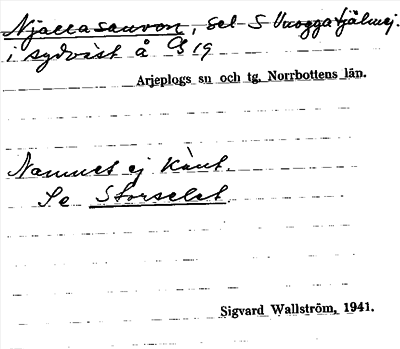 Njallasauvon, sel S Vuoggatjålmej.
i sydväst å C5 19
Arjeplogs su och tg. Norrbottens län.
Namnet ej känt.
Se Storselet
Sigvard Wallström, 1941.